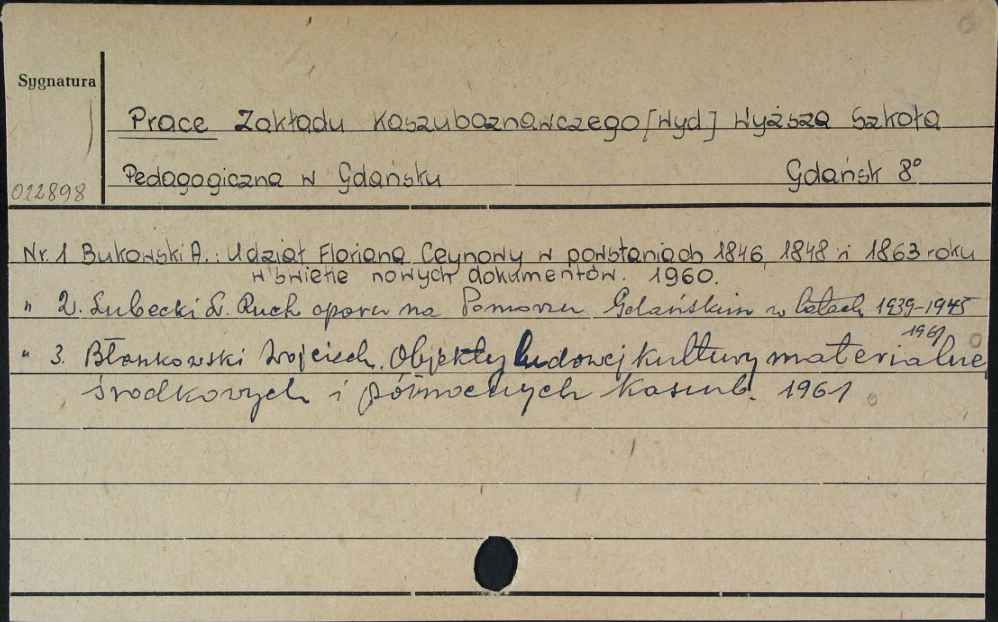 Sygnatura
Prace Zakładu Kaszuboznawczego [Wyd] Wyższa Szkoła
Pedagogiczna w Gdańsku Gdańsk 8°
012898
Nr. 1 Bukowski A.: Udział Floriana Ceynowy w powstaniach 1846, 1848 i 1863 roku
w świetle nowych dokumentów. 1960.
" 2. Lubecki L. Ruch oporu na Pomorzu Gdańskim w latach 1939-1945
1961
" 3. Błankowski Wojciech. Objekty ludowej kultury materialnej
środkowych i północnych Kaszub. 1961